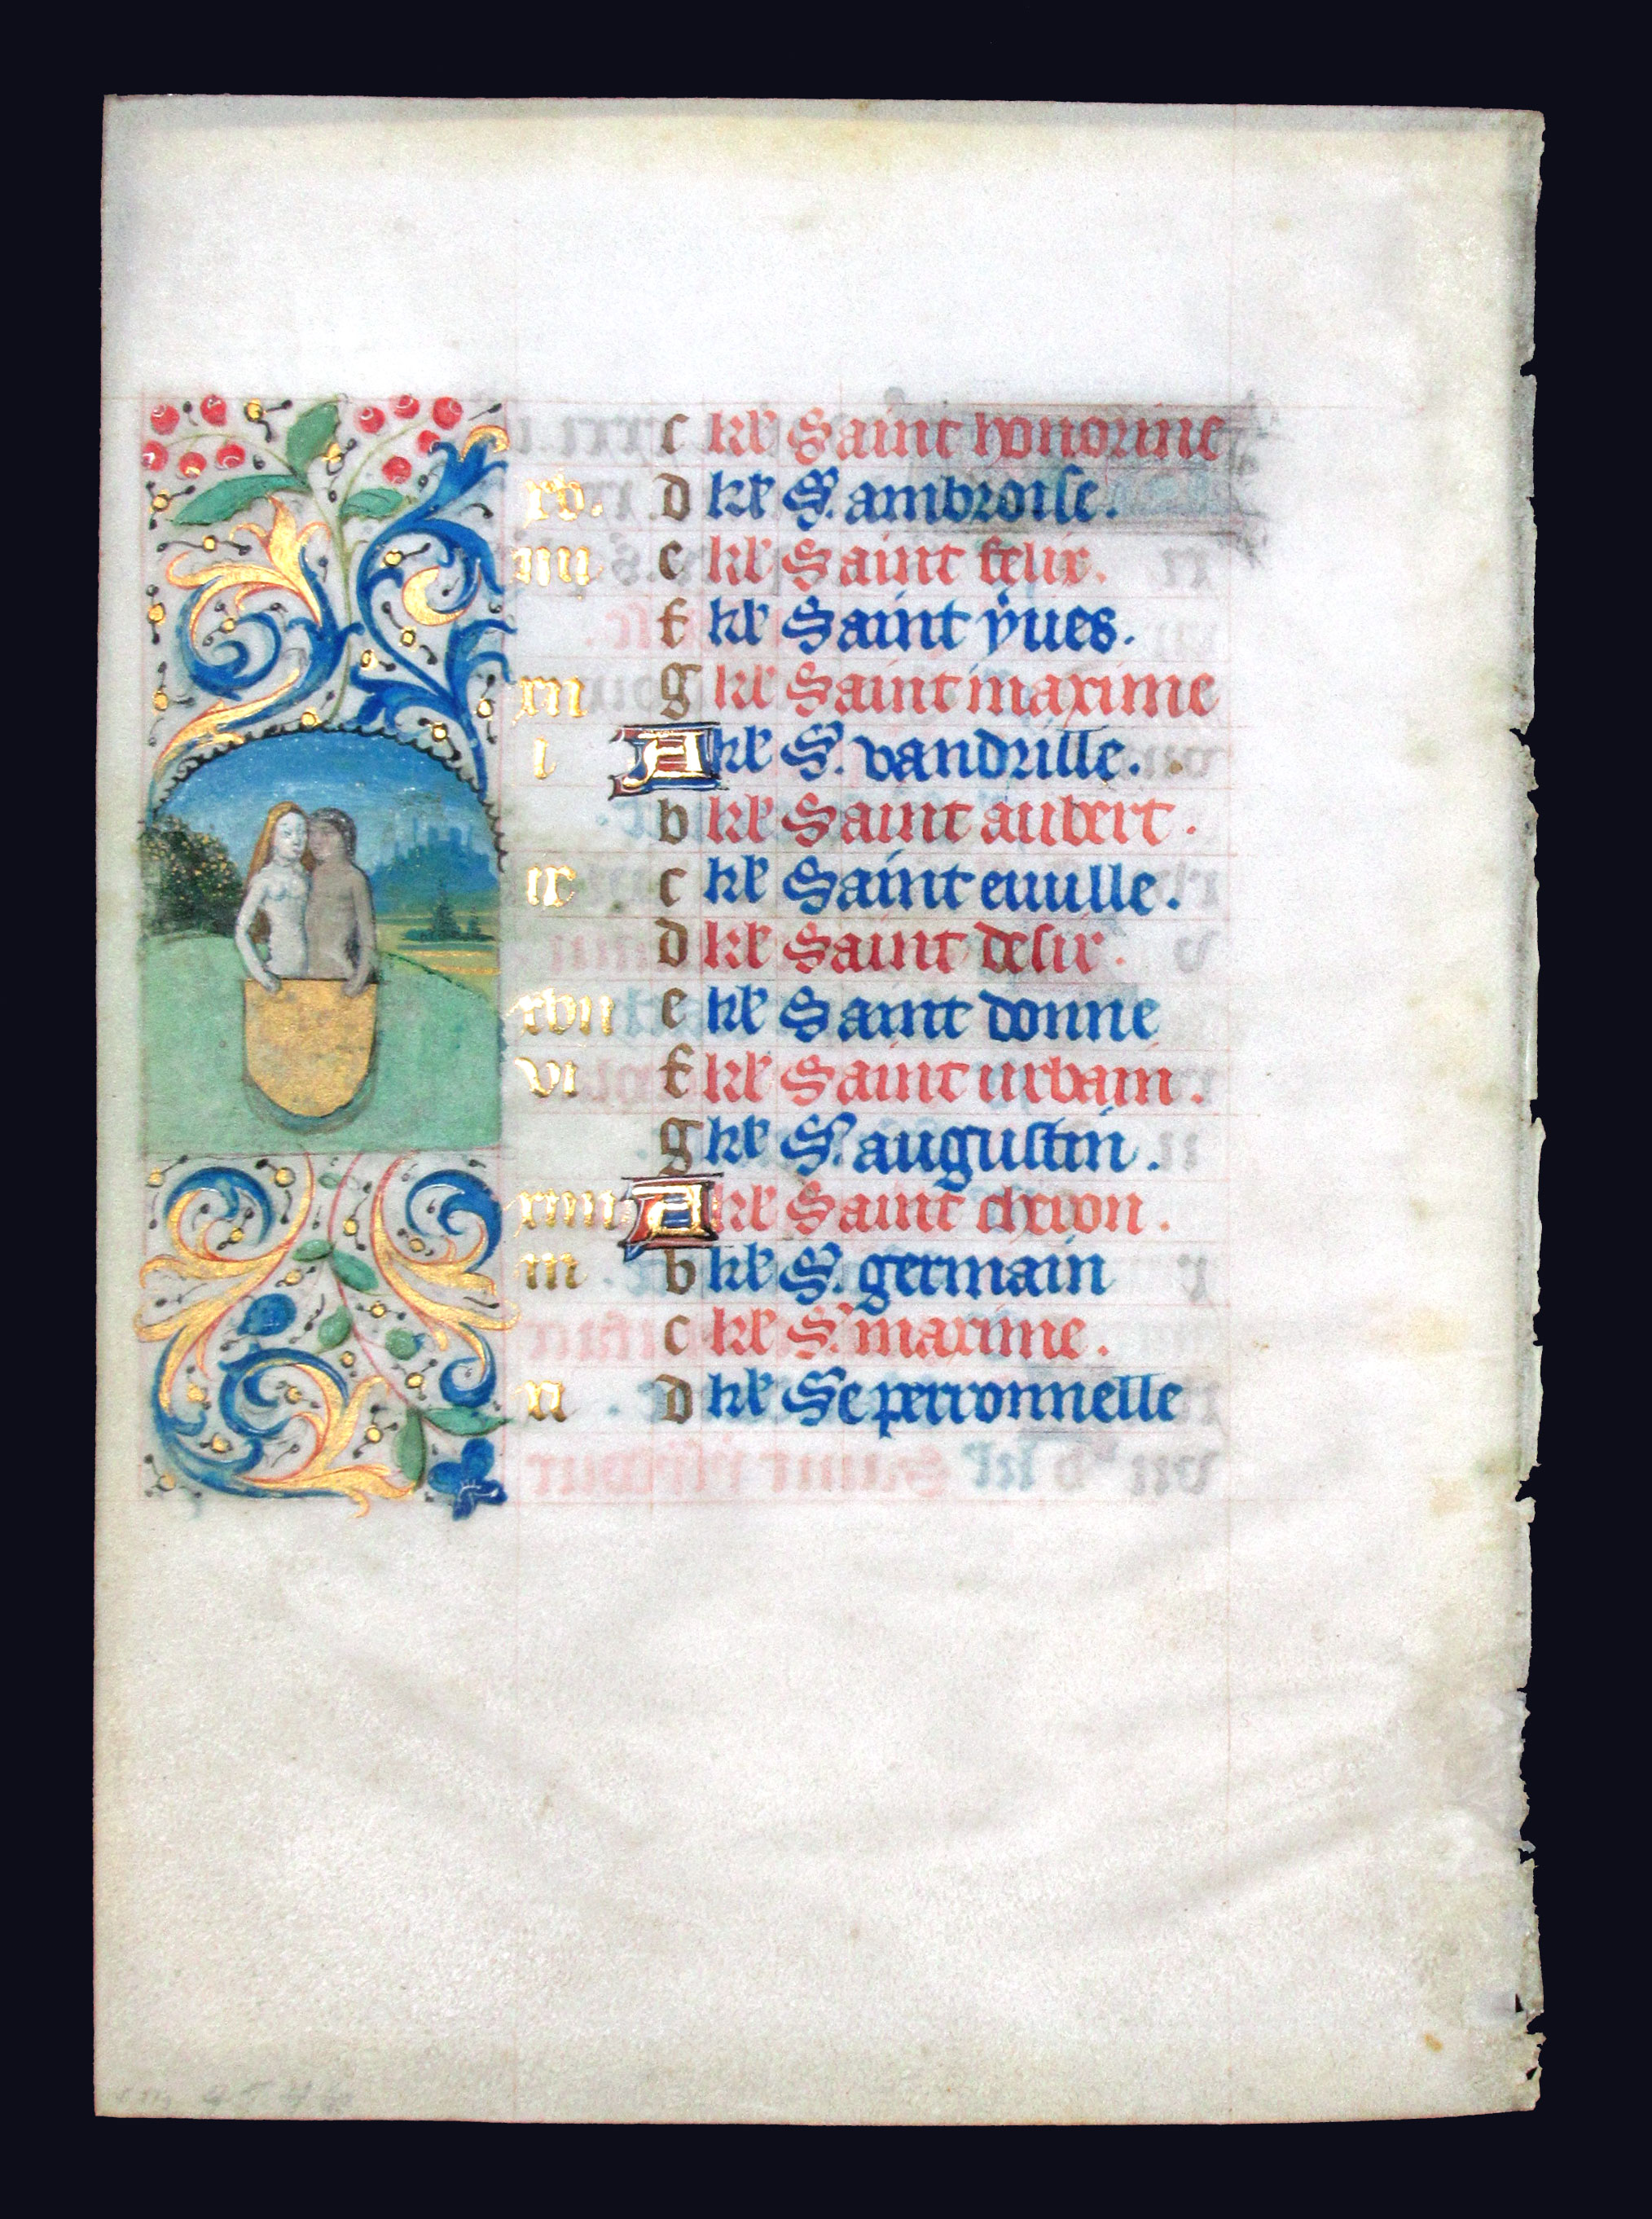 c kł Saint honorine
xv. d kł S. ambroise.
iiii e kł Saint felix.
f kł Saint yues.
xii g kł Saint maxime
i A kł S. vandrille.
b kł Saint aubert.
ix c kł Saint euuille.
d kł Saint desir.
xvii e kł Saint donne
vi f kł Saint urbain.
g kł S. augustin.
xiiii A kł Saint
iii b kł S. germain
c kł S. maxime.
xi d kł Se perronnelle